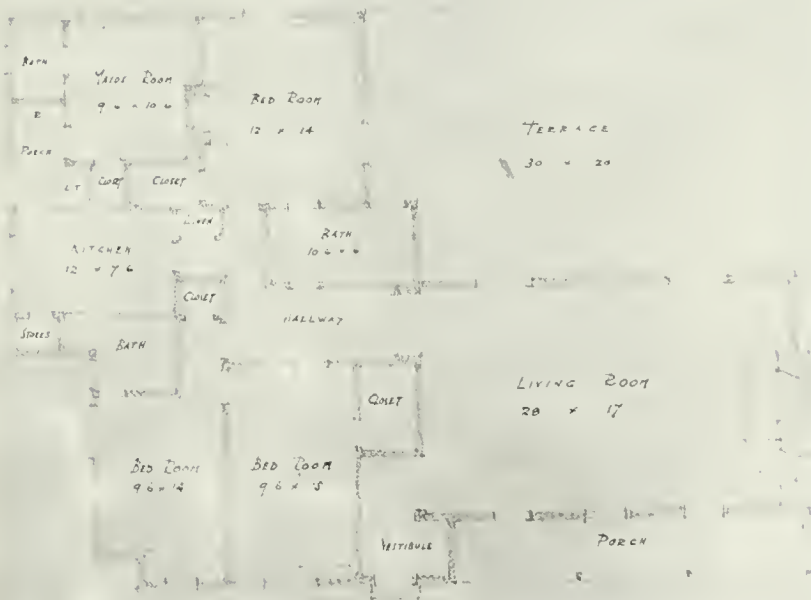 BATH
MAIDS ROOM
9 6 x 10 6
R
PORCH
BED ROOM
12 x 14
TERRACE
30 x 20
L T
CLOSET
CLOSET
LINEN
BATH
10 6 x 6
KITCHEN
12 x 7 6
CLOSET
HALLWAY
STORES
BATH
CLOSET
LIVING ROOM
28 x 17
BED ROOM
9 6 x 12
BED ROOM
9 6 x 15
VESTIBULE
PORCH